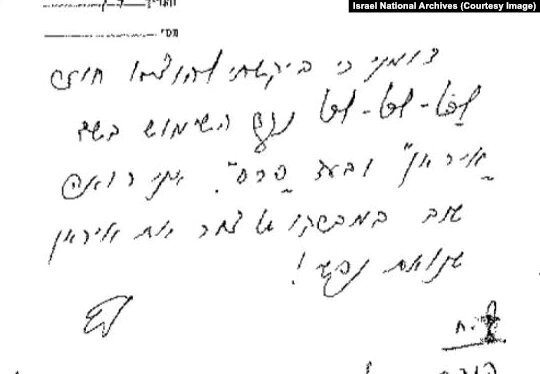 Israel National Archives (Courtesy Image)
התאריך
מס'
דומני כי ביקשתי להוציא חוזר
נגד השימוש בשם
"איראן" ובעד "פרס". אני רואה
שוב במברקו של את איראן
שנואת נפשי!